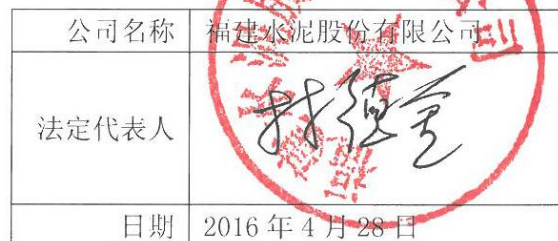 公司名称 福建水泥股份有限公司
法定代表人
日期 2016年4月28日